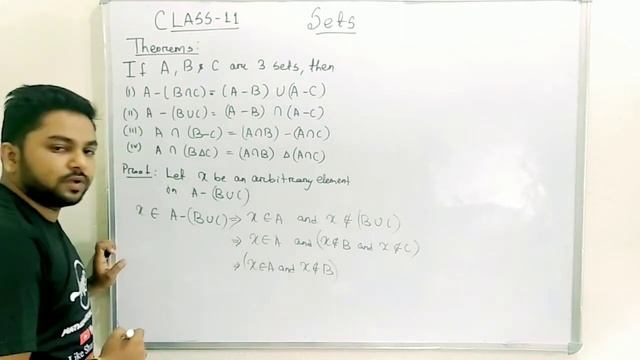 CLASS-11 Sets
Theorems:
If A, B & C are 3 sets, then
(i) A-(B∩C)=(A-B) ∪(A-C)
(ii) A-(B∪C)=(A-B) ∩(A-C)
(iii) A ∩ (B-C) =(A∩B) -(A∩C)
(iv) A ∩ (BΔC) =(A∩B) Δ(A∩C)
Proof: Let x be an arbitrary element
in A-(B∪C)
x ∈ A-(B∪C) ⇒ x ∈A and x ∉ (B∪C)
⇒ x∈A and (x∉B and x∉C)
⇒ (x∈A and x∉B)
Like